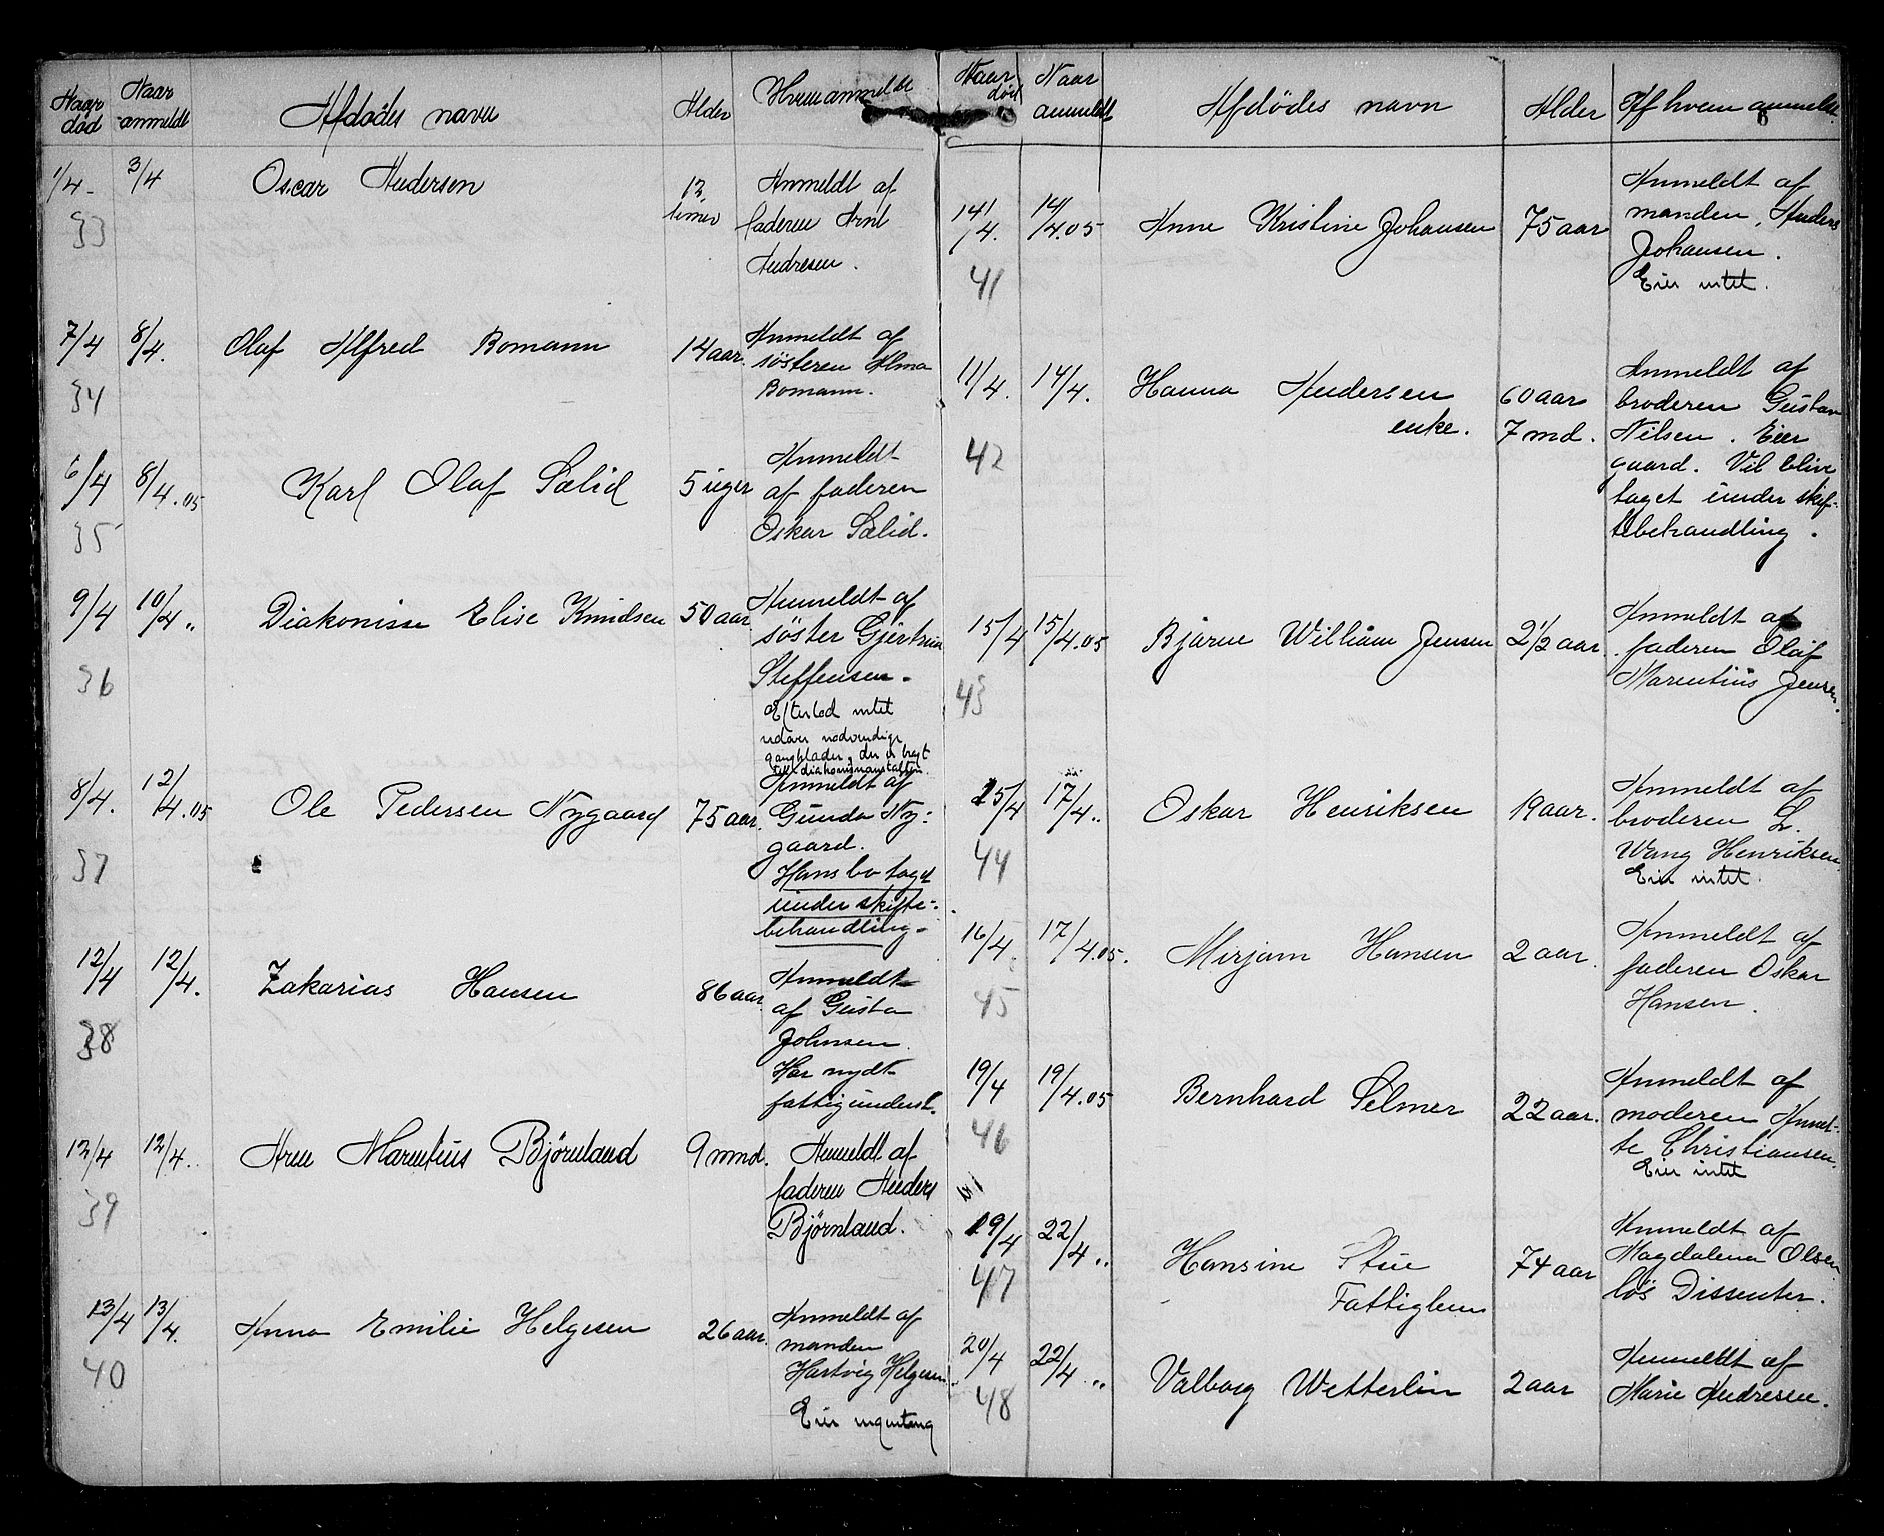 Naar død Naar anmeldt Afdødes navn Alder Hvem anmeldt
1/4 3/4 Oscar Andersen 12 timer Anmeldt af
faderen Arnt
Andresen.
33
7/4 8/4. Olaf Alfred Bomann 14 aar. Anmeldt af
søsteren Alma
Bomann.
34
6/4 8/4.05 Karl Olaf Sælid 5 uger Anmeldt
af faderen
Oskar Sælid.
35
9/4 10/4 „ Diakonisse Elise Knudsen 50 aar Anmeldt af
søster Gjertrud
Steffensen.
Efterlod intet
udover nødvendige
gangklæder, der er bragt
till diakonisseanstalten.
36
8/4. 12/4.05 Ole Pedersen Nygaard 75 aar. Anmeldt af
Gunda Ny-
gaard.
Hans bo taget
under skifte-
behandling.
37
12/4 12/4. Zakarias Hansen 86 aar Anmeldt
af Gusta
Johnsen.
Har nydt
fattigunderst.
38
12/4 12/4. Arne Marentius Bjørnland 9 mnd. Anmeldt af
faderen Anders
Bjørnland.
39
13/4 13/4. Anna Emilie Helgesen 26 aar. Anmeldt af
manden
Hartvig Helgesen.
Eier ingenting
40
Naar død Naar anmeldt Afdødes navn Alder Af hvem anmeldt
6
14/4. 14/4.05 Anne Kristine Johansen 75 aar Anmeldt af
manden, Anders
Johansen.
Eier intet.
41
11/4. 14/4. Hanna Andersen 60 aar Anmeldt af
enke. 7 md. broderen Gustav
Nilsen. Eier
gaard. Vil blive
taget under skif-
tebehandling.
42
15/4 15/4.05 Bjarne William Jensen 2 1/2 aar. Anmeldt af
faderen Olaf
Marentius Jensen.
43
15/4 17/4 „ Oskar Henriksen 19 aar. Anmeldt af
broderen L.
Wang Henriksen
Eier intet.
44
16/4. 17/4.05. Mirjam Hansen 2 aar. Anmeldt af
faderen Oskar
Hansen.
45
19/4 19/4.05 Bernhard Selmer 22 aar. Anmeldt af
moderen Annet-
te Christiansen.
Eier intet
46
19/4 22/4 „ Hansine Stue 74 aar Anmeldt af
Fattiglem Magdalena Olsen
løs Dissenter.
47
20/4 22/4 „ Valborg Wetterlin 2 aar Anmeldt af
Marie Andresen.
48